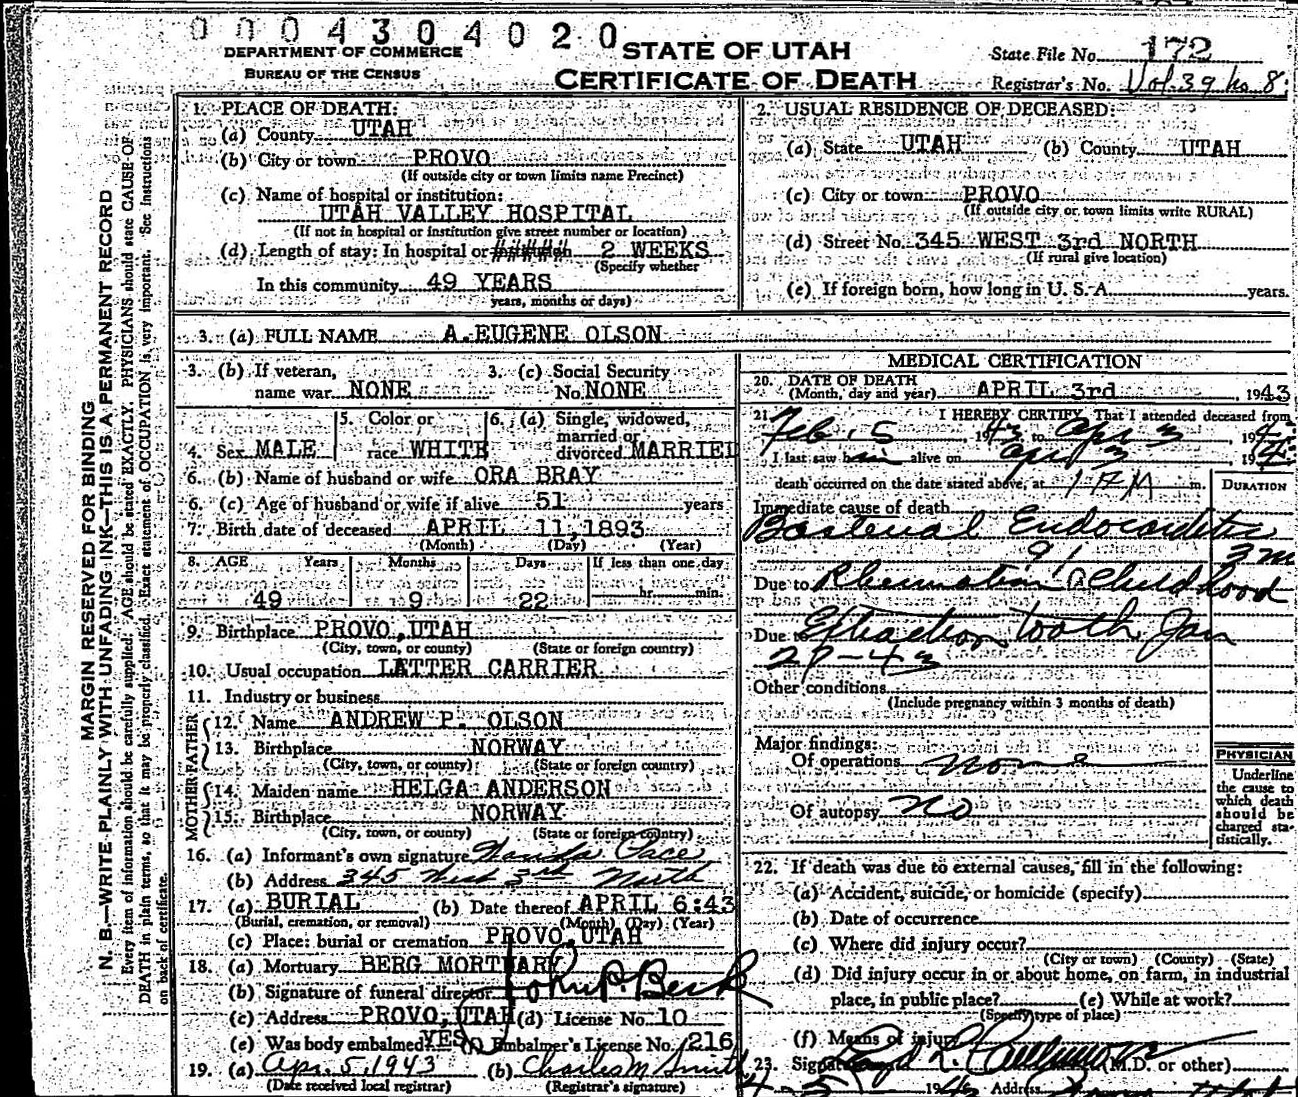 0004304020
DEPARTMENT OF COMMERCE
BUREAU OF THE CENSUS
STATE OF UTAH
CERTIFICATE OF DEATH
State File No. 172
Registrar's No. Vol. 39 No. 8
MARGIN RESERVED FOR BINDING
N. B.—WRITE PLAINLY WITH UNFADING INK—THIS IS A PERMANENT RECORD
Every item of information should be carefully supplied. AGE should be stated EXACTLY. PHYSICIANS should state CAUSE OF
DEATH in plain terms, so that it may be properly classified. Exact statement of OCCUPATION is very important. See Instructions
on back of certificate.
1. PLACE OF DEATH:
(a) County UTAH
(b) City or town PROVO
(If outside city or town limits name Precinct)
(c) Name of hospital or institution:
UTAH VALLEY HOSPITAL
(If not in hospital or institution give street number or location)
(d) Length of stay: In hospital or ##### 2 WEEKS
(Specify whether
In this community 49 YEARS
years, months or days)
2. USUAL RESIDENCE OF DECEASED:
(a) State UTAH (b) County UTAH
(c) City or town PROVO
(If outside city or town limits write RURAL)
(d) Street No. 345 WEST 3rd NORTH
(If rural give location)
(e) If foreign born, how long in U. S. A. years.
3. (a) FULL NAME A. EUGENE OLSON
3. (b) If veteran, 3. (c) Social Security
name war NONE No. NONE
5. Color or 6. (a) Single, widowed,
married or
4. Sex MALE race WHITE divorced MARRIED
6. (b) Name of husband or wife ORA BRAY
6. (c) Age of husband or wife if alive 51 years
7. Birth date of deceased APRIL 11, 1893
(Month) (Day) (Year)
8. AGE Years Months Days If less than one day
49 9 22 hr. min.
9. Birthplace PROVO, UTAH
(City, town, or county) (State or foreign country)
10. Usual occupation LATTER CARRIER
11. Industry or business
FATHER
12. Name ANDREW P. OLSON
13. Birthplace NORWAY
(City, town, or county) (State or foreign country)
MOTHER
14. Maiden name HELGA ANDERSON
15. Birthplace NORWAY
(City, town, or county) (State or foreign country)
16. (a) Informant's own signature Wanda Pace
(b) Address 345 West 3rd North
17. (a) BURIAL (b) Date thereof APRIL 6:43
(Burial, cremation, or removal) (Month) (Day) (Year)
(c) Place: burial or cremation PROVO, UTAH
18. (a) Mortuary BERG MORTUARY
(b) Signature of funeral director
(c) Address PROVO, UTAH (d) License No. 10
(e) Was body embalmed YES (f) Embalmer's License No. 216
19. (a) Apr. 5, 1943 (b) Charles M Smith
(Date received local registrar) (Registrar's signature)
MEDICAL CERTIFICATION
20. DATE OF DEATH
(Month, day and year) APRIL 3rd, 1943
21. I HEREBY CERTIFY, That I attended deceased from
Feb. 5, 1943 to Apr 3 19
I last saw him alive on Apr 3 19
death occurred on the date stated above, at 1 AM m. DURATION
Immediate cause of death
Bacterial Endocarditis
91 3 m
Due to Rheumatism @ Childhood
Due to Extraction tooth Jan
29-43
Other conditions
(Include pregnancy within 3 months of death)
Major findings:
Of operations none
Of autopsy no
PHYSICIAN
Underline
the cause to
which death
should be
charged sta-
tistically.
22. If death was due to external causes, fill in the following:
(a) Accident, suicide, or homicide (specify)
(b) Date of occurrence
(c) Where did injury occur?
(City or town) (County) (State)
(d) Did injury occur in or about home, on farm, in industrial
place, in public place? (e) While at work?
(Specify type of place)
(f) Means of injury
23. Signature (M.D. or other)
4-5 1943 Address